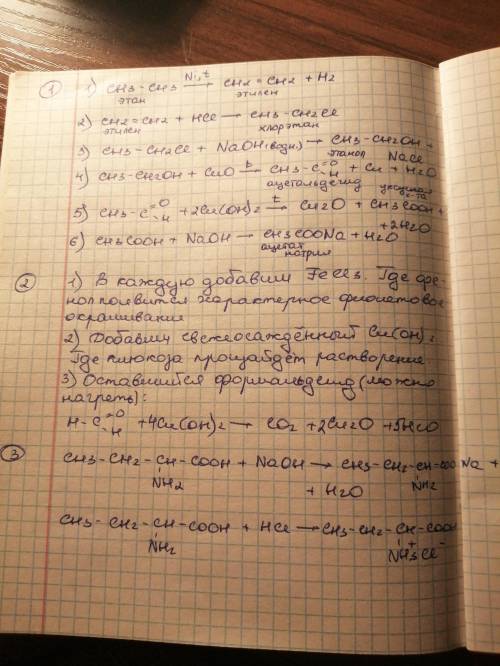 ① 1) CH3-CH3 Ni, t → CH2=CH2 + H2
этан этилен
2) CH2=CH2 + HCl → CH3-CH2Cl
этилен хлорэтан
3) CH3-CH2Cl + NaOH (водн.) → CH3-CH2OH +
этанол NaCl
4) CH3-CH2OH + CuO t → CH3-C=O-H + Cu + H2O
ацетальдегид уксусная к-та
5) CH3-C=O-H + 2Cu(OH)2 t → Cu2O + CH3COOH +
+2H2O
6) CH3COOH + NaOH → CH3COONa + H2O
ацетат
натрия
② 1) В каждую добавим FeCl3. Где фе-
нол появится характерное фиолетовое
окрашивание
2) Добавим свежеосаждённый Cu(OH)2
Где глюкоза произойдёт растворение
3) Оставшийся формальдегид (можно
нагреть):
H-C=O-H +4Cu(OH)2 → CO2 +2Cu2O +5H2O
③ CH3-CH2-CH-COOH + NaOH → CH3-CH2-CH-COONa +
NH2 NH2
+ H2O
CH3-CH2-CH-COOH + HCl → CH3-CH2-CH-COOH
NH2 NH3+Cl-